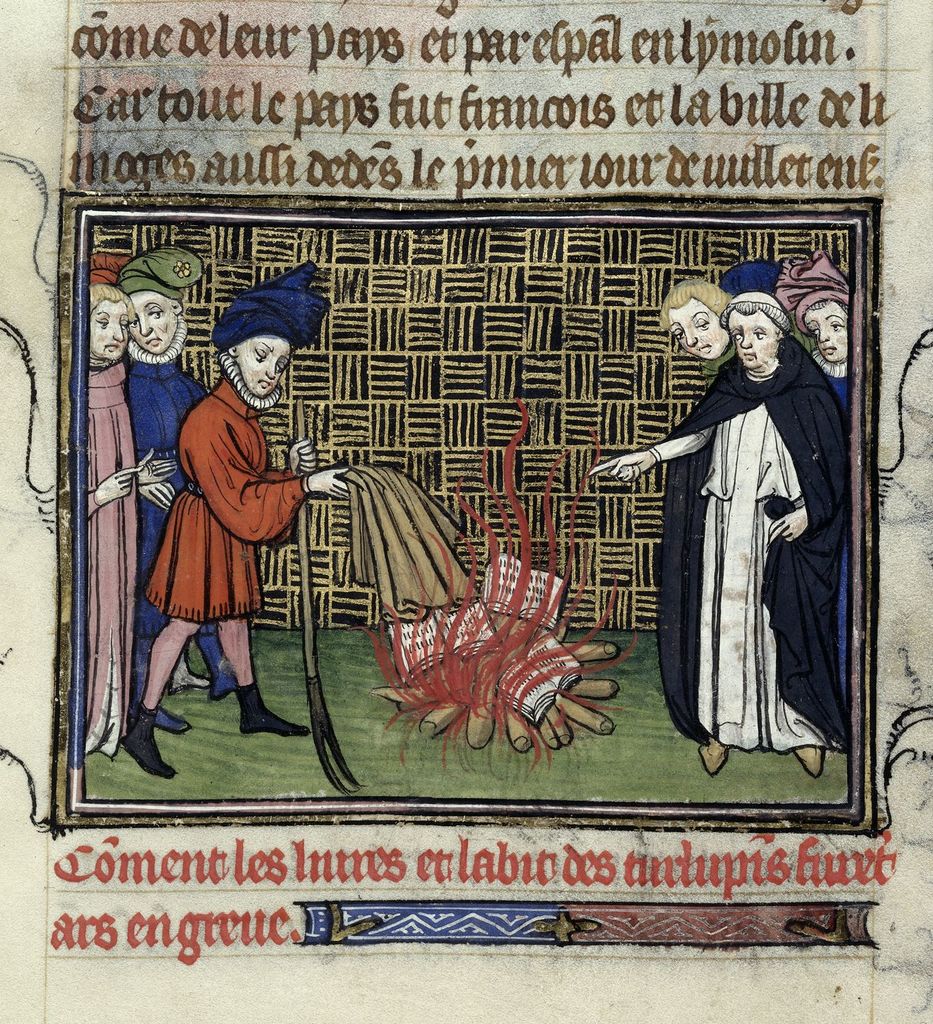 cōme de leur pays et par esp̄al en lymosin.
Car tout le pays fut francois et la ville de li
moges aussi dedēs le p̄mier iour de iuillet ens.
Cōment les liures et labit des turlupīs furēt
ars en greue.